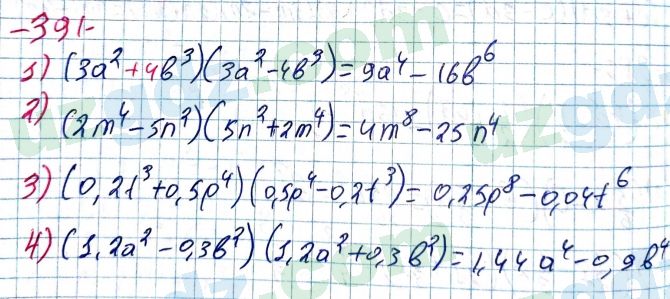 -391-
1) (3a² + 4b³)(3a² - 4b³) = 9a⁴ - 16b⁶
2) (2m⁴ - 5n²)(5n² + 2m⁴) = 4m⁸ - 25n⁴
3) (0,2t³ + 0,5p⁴)(0,5p⁴ - 0,2t³) = 0,25p⁸ - 0,04t⁶
4) (1,2a² - 0,3b²)(1,2a² + 0,3b²) = 1,44a⁴ - 0,9b⁴